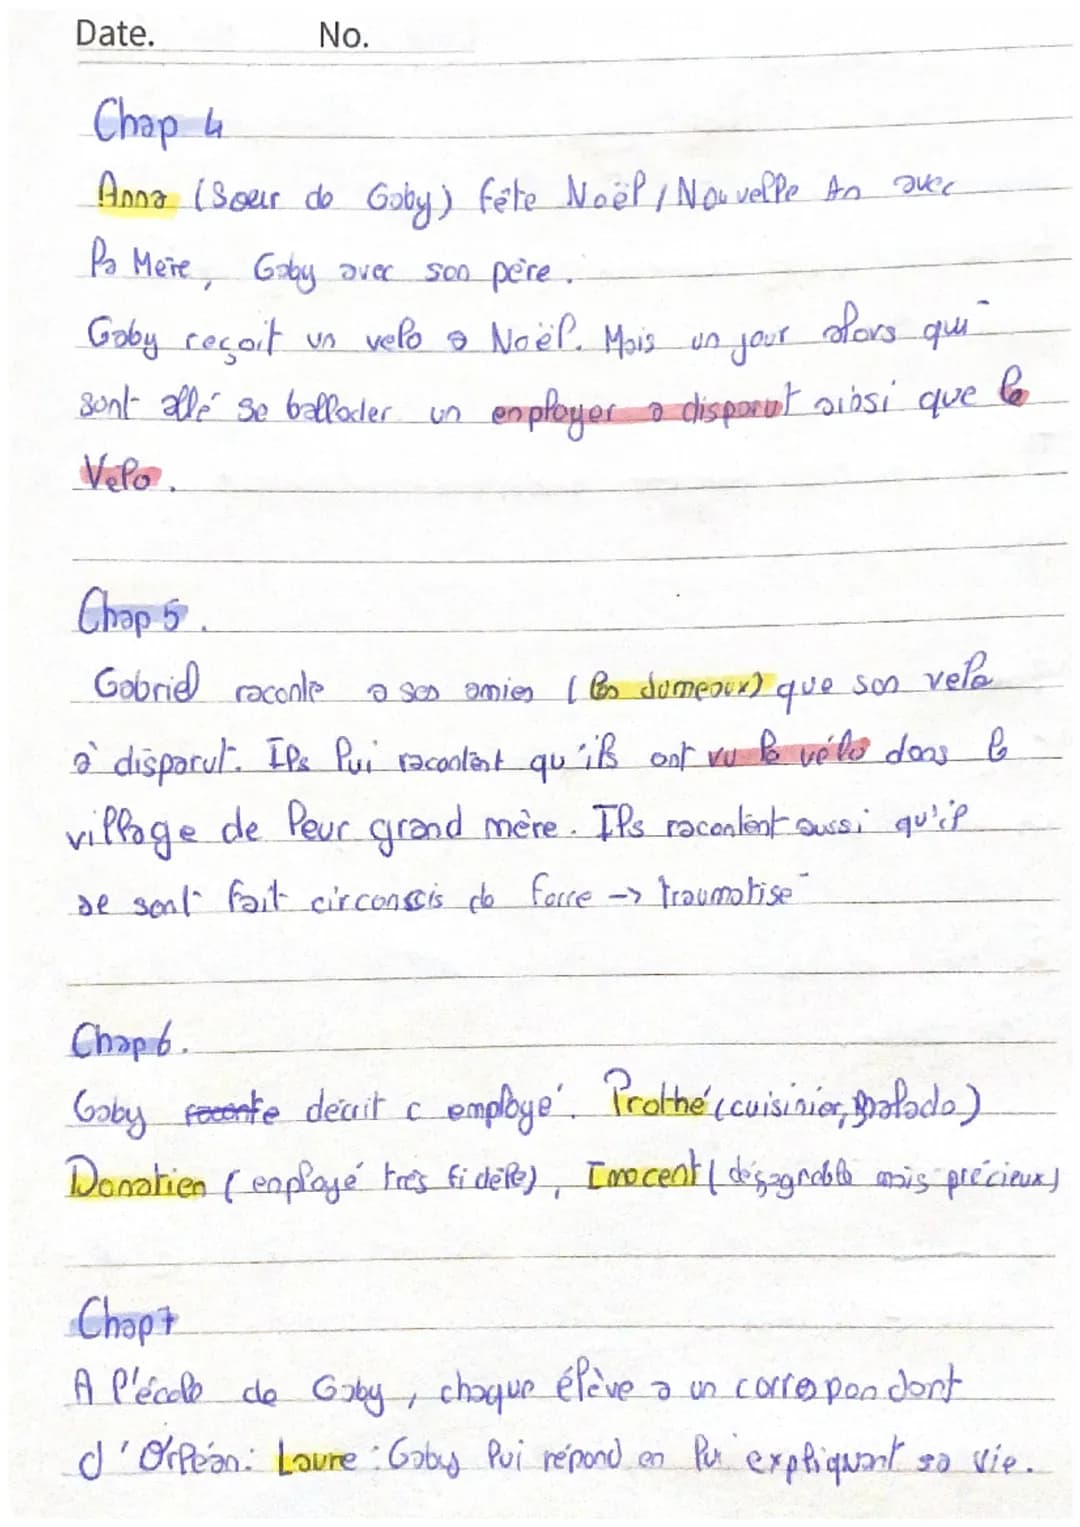 Date. No.
Chap 4
Anna (Soeur de Gaby) fête Noël / Nouvelle An avec
la Mère, Gaby avec son père.
Gaby reçoit un velo a Noël. Mais un jour alors qui
sont allé se ballader un employer a disparut ainsi que le
Velo.
Chap 5.
Gabriel raconte a ses amies (les Jumeaux) que son velo
à disparut. Ils lui racontent qu'ils ont vu le vélo dans le
village de leur grand mère. Ils racontent aussi qu'il
se sont fait circonscis de force -> traumatisé
Chap 6.
Gaby raconte décrit c employé. Prothé (cuisinier, malade)
Donatien (employé très fidèle), Innocent (désagréable mais précieux)
Chap 7
A l'école de Gaby, chaque élève a un correspondant
d'Orléan: Laure : Gaby lui répond en lui expliquant sa vie.